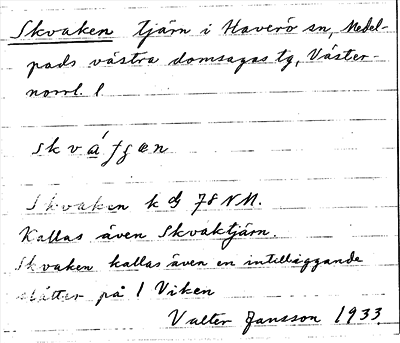 Skvaken tjärn i Haverö sn, Medel-
pads västra domsagas tg, Väster-
norrl. l
skvá
Skvaken k 78 NM.
Kallas även Skvaktjärn.
Skvaken kallas även en intilliggande
slåtter på 1 Viken
Valter Jansson 1933.